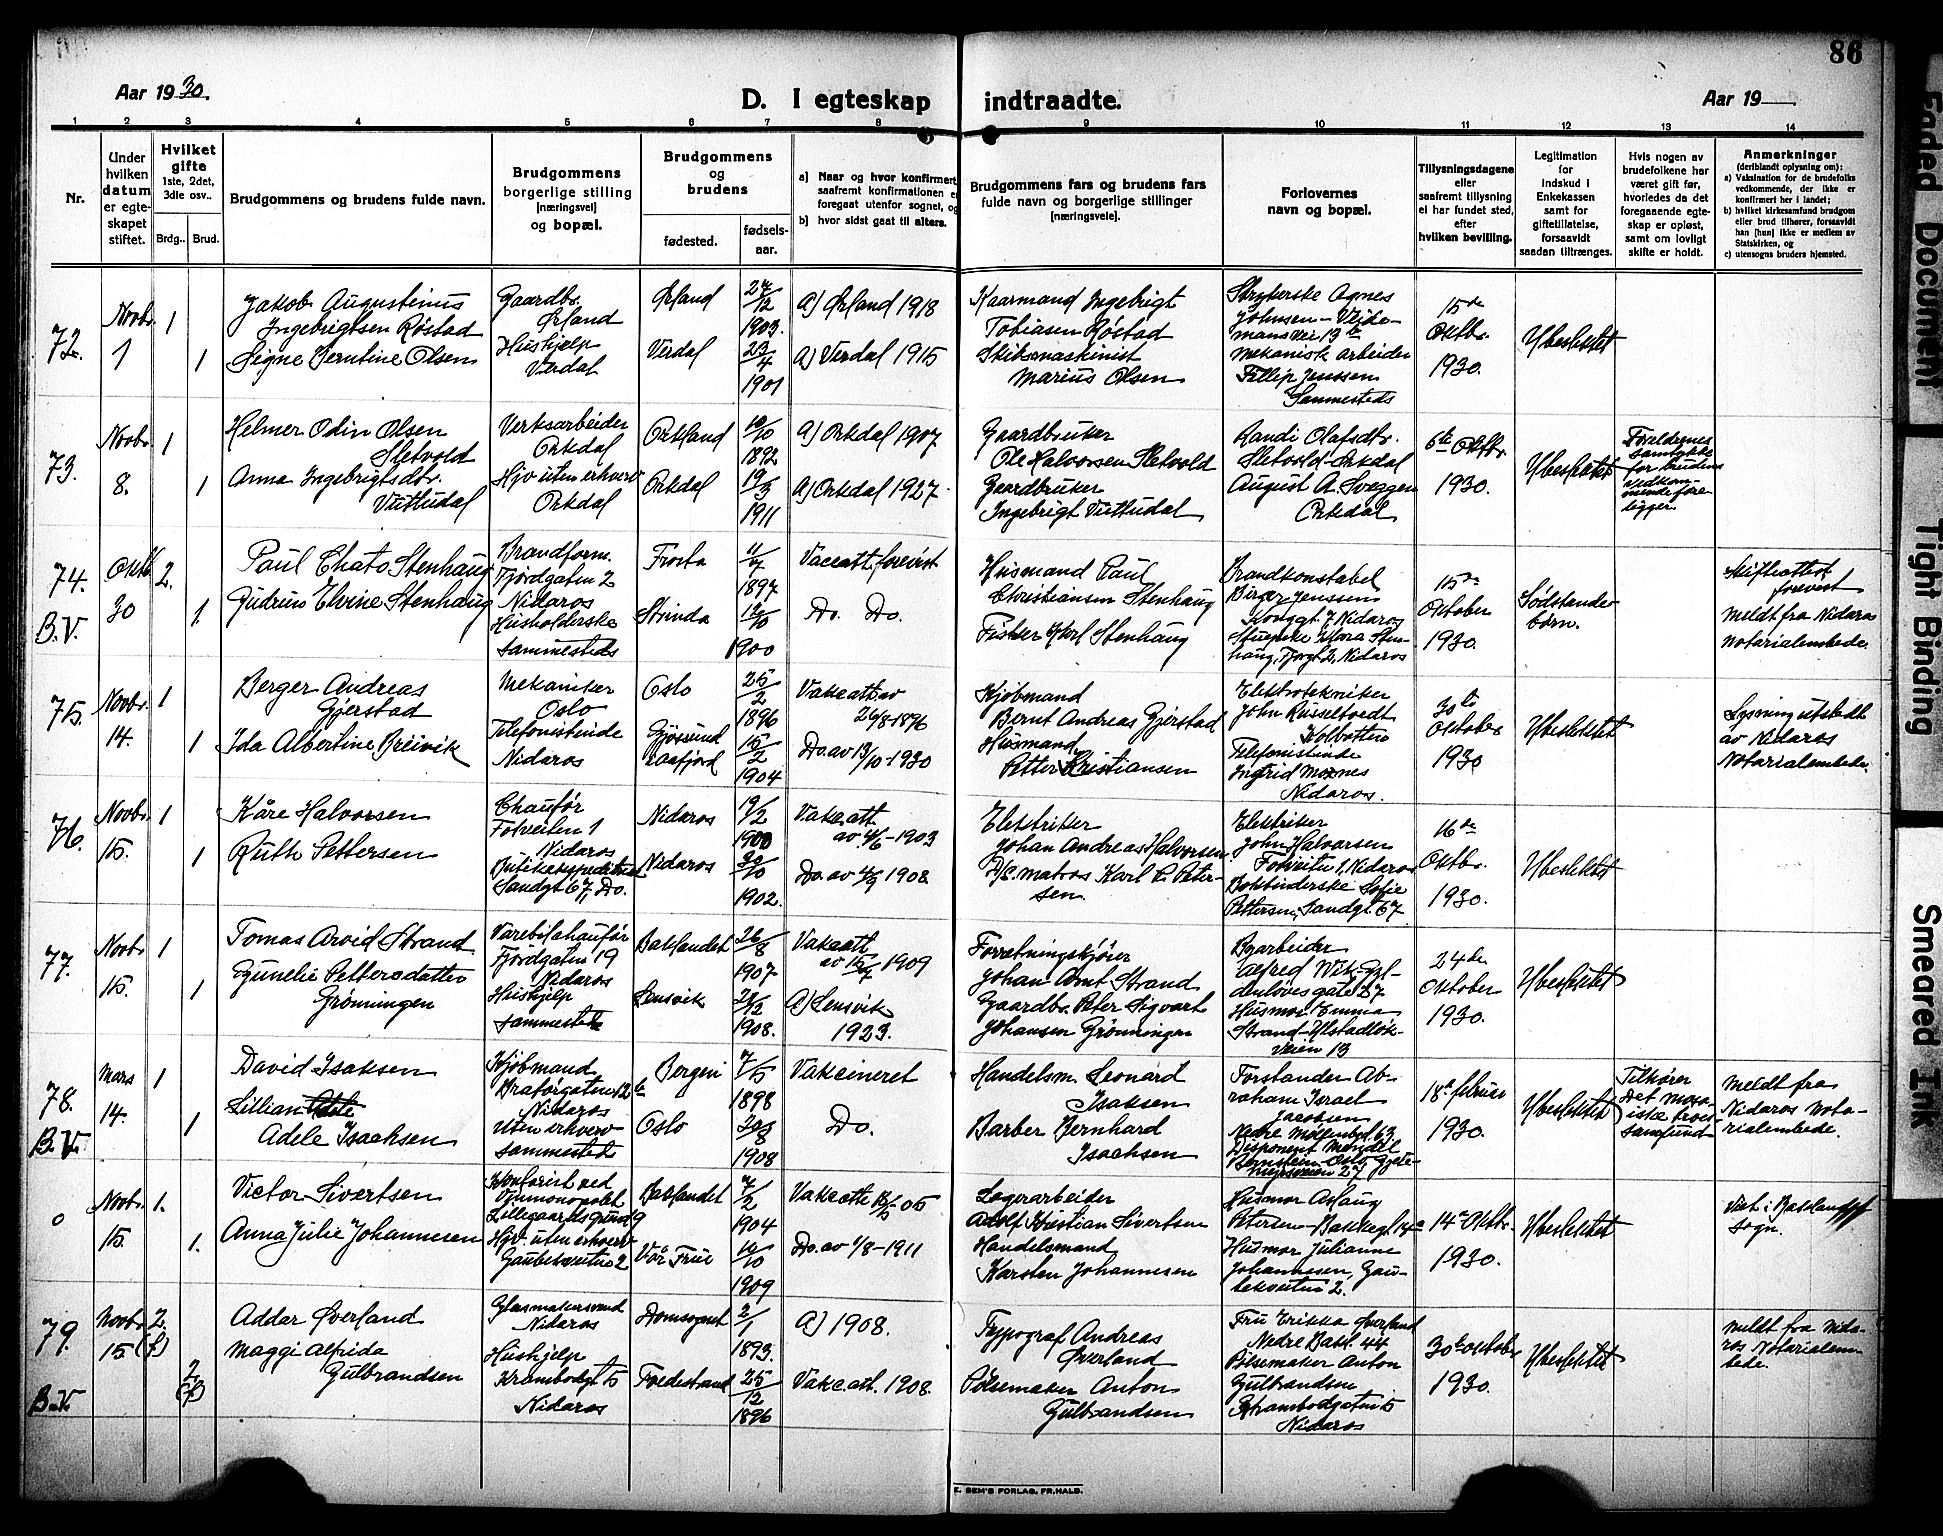 86
Aar 1930.
D. I egteskap indtraadte.
Aar 19
1 2 3 4 5 6 7 8 9 10 11 12 13 14
Nr.
Under
hvilken
datum
er egte-
skapet
stiftet.
Hvilket
gifte
1ste, 2det,
3die osv..
Brdg..
Brud.
Brudgommens og brudens fulde navn.
Brudgommens
borgerlige stilling
[næringsvei]
og bopæl.
Brudgommens
og
brudens
fødested.
fødsels-
aar.
a) Naar og hvor konfirmert,
saafremt konfirmationen er
foregaat utenfor sognet, og
b) hvor sidst gaat til alters.
Brudgommens fars og brudens fars
fulde navn og borgerlige stillinger
[næringsveie].
Forlovernes
navn og bopæl.
Tillysningsdagene
eller
saafremt tillysning
ei har fundet sted,
efter
hvilken bevilling.
Legitimation
for
indskud i
Enkekassen
samt for
giftetillatelse,
forsaavidt
saadan tiltrænges.
Hvis nogen av
brudefolkene har
været gift før,
hvorledes da det
foregaaende egte-
skap er opløst,
samt om lovligt
skifte er holdt.
Anmerkninger
(deriblandt oplysning om):
a) Vaksination for de brudefolks
vedkommende, der ikke er
konfirmert her i landet;
b) hvilket kirkesamfund brudgom
eller brud tilhører, forsaavidt
han [hun] ikke er medlem av
Statskirken, og
c) utensogns bruders hjemsted.
72.
Novbr.
1
1
1
Jakob Augustinus
Ingebrigtsen Røstad
Signe Berntine Olsen
Gaardbr.
Ørland
Hushjelp
Verdal
Ørland
Verdal
1903.
23/4
1901
a) Ørland 1918
a) Verdal 1915
Kaarmand Ingebrigt
Tobiasen Røstad
Skibsmaskinist
Marius Olsen
Strykerske Agnes
Johnsen - Veide-
mansvei 13 b
Mekanisk arbeider
Fillip Jenssen
Sammesteds
15de
Oktbr.
1930.
Ubeslektet
73.
Novbr.
8.
1
1
Helmer Odin Olsen
Sletvold
Anna Ingebrigtsdtr.
Vuttudal
Verksarbeider
Orkdal
Hjv uten erhverv
Orkdal
Orkland
Orkdal
1892
1911
a) Orkdal 1907
a) Orkdal 1927.
Gaardbruker
Ole Halvorsen Sletvold
Gaardbruker
Ingebrigt Vuttudal
Randi Olafsdtr.
Sletvold - Orkdal
August A. Sveggen
Orkdal
6te Oktbr.
1930.
Ubeslektet
Forældrenes
samtykke
for brudens
vedkom-
mende fore
ligger.
74.
B.V.
Oktb
30
2.
1.
Paul Chato Stenhaug
Gudrun Elvine Stenhaug
Brandform.
Fjordgaten 2
Nidaros
Husholderske
Sammesteds
Frosta
Strinda
1897
1900
Vaccatt. forevist
Do. Do.
Husmand Paul
Christiansen Stenhaug
Fisker Karl Stenhaug
Brandkonstabel
Birger Jenssen
Konggt 7 Nidaros
15de
Oktober
1930.
Sødskende-
børn.
Skifteattest
forevist
Meldt fra Nidaros
Notarialembede.
75.
Novbr.
14.
1
1
Berger Andreas
Gjerstad
Ida Albertine Breivik
Mekaniker
Oslo
Telefonistinde
Nidaros
Oslo
25/2
1896
15/2
1904
Vakcatt. av
26/8-1896
Do. av 13/10-1930
Kjøbmand
Bernt Andreas Gjerstad
Husmand
Petter Kristiansen
Elektrotekniker
John Russeltvedt
Kolbotten
Telefonistinde
Ingrid Moxnes
Nidaros.
30te
Oktober
1930
Ubeslektet
Lysning utstedt
av Nidaros
Notarialembede.
76.
Novbr.
15.
1
1
Kåre Halvorsen
Ruth Pettersen
Chaufør
Fotveiten 1
Nidaros
Sandgt 67, Do.
Nidaros
Nidaros
19/2
1900
1902.
Vakcatt.
av 4/6-1903
Do. av 4/9 1908.
Elektriker
Johan Andreas Halvorsen
D/S. matros Karl P. Peter-
sen.
Elektriker
John Halvorsen
Fotveiten 1, Nidaros
Bokbinderske Sofie
Pettersen, Sandgt. 67
16de
Oktbr.
1930.
Ubeslektet
77.
Novbr.
15.
1
1
Tomas Arvid Strand
Gunelie Pettersdatter
Grønningen
Varebilchaufør
Fjordgaten 19
Nidaros
Hushjelp
Sammesteds
Baklandet
Lensvik
26/8
1907
1908.
Vakcatt
1909
a) Lensvik
1923.
Forretningskjører
Johan Arnt Strand
Gaardbr. Peter Sigvart
Johansen Grønningen
Byarbeider
Alfred Wik - Gyl-
denløves gate 27
Husmor Emma
Strand - Ilstadløk-
veien 13
24de
Oktober
1930.
Ubeslektet
78.
B.V.
Mars
14.
1
1
David Isaksen
Lillian Adele
Adele Isachsen
Kjøbmand
Bratørgaten 12 b
Nidaros
Uten erhverv
Sammesteds
Bergen
Oslo
7/5
1898
1908
Vakcineret
Do.
Handelsm. Leonard
Isaksen
Barber Bernhard
Isachsen
Forstander Ab-
raham Israel
Jacobsen
Disponent Mendel
Bernstein - Oslo,
18de februar
1930.
Ubeslektet
Tilhører
det mosa-
iske troes
samfund
Meldt fra
Nidaros Nota-
rialembede.
0
Novbr.
15.
1.
1.
Victor Sivertsen
Anna Julie Johannesen
Kontorist ved
Vinmonopolet
Hjv. uten erhverv
Gaubekveiten 2
Baklandet
Vår Frue
1904
1909
Vakcatt
05
Do. av 1/8-1911
Lagerarbeider
Adolf Kristian Sivertsen
Handelsmand
Karsten Johannesen
Husmor Aslaug
Petersen - Bakkegt 14 a
Husmor Julianne
Johannesen, Gau-
bekveiten 2.
14de Oktbr.
1930.
Ubeslektet
Viet i Baklandet
sogn.
79.
B.V.
Novbr.
15.
2.
(f)
2
(f)
Addar Øverland
Maggi Alfrida
Gulbrandsen
Glasmakersvend
Nidaros
Hushjelp
Krambodgt 5
Nidaros
Domsognet
Tvedestrand
2/1
1893.
25/12
1896
a) 1908.
Vakc.att. 1908.
Typograf Andreas
Øverland
Pølsemaker Anton
Gulbrandsen
Fru Erikka Øverland
Nedre Bakl. 44
Pølsemaker Anton
Gulbrandsen
Krambodgaten 5
Nidaros
30te Oktober
1930.
Ubeslektet
Meldt fra Nida-
ros Notarialem-
bede.
E. SEM'S FORLAG, FR.HALD.
Faded Document
Tight Binding
Smeared Ink